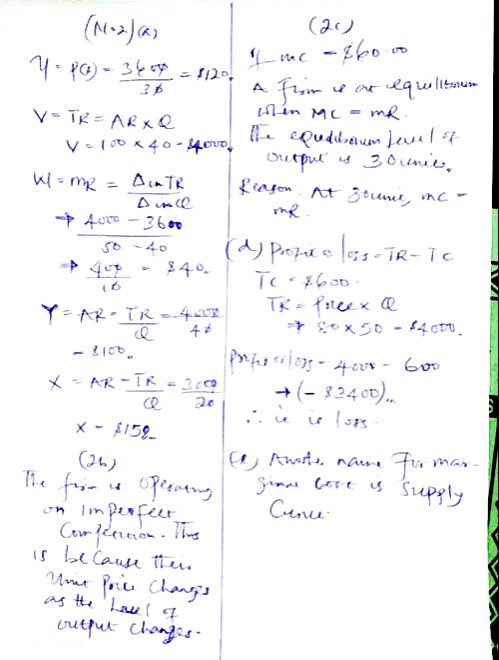 (No.2)(a)
Y = P(₦) = 3600/30 = $120.
V = TR = AR x Q
V = 100 x 40 = $4000.
W = MR = Δ in TR / Δ in Q
⇒ 4000 - 3600 / 50 - 40
⇒ 400 / 10 = $40.
Y = AR = TR / Q = 4000 / 40
= $100.
X = AR = TR / Q = 3000 / 20
X = $150
(2b)
The firm is operating
on imperfect
Competition. This
is because their
Unit Price Changes
as the Level of
output changes.
(2c)
If mc = $60.00
A firm is at equilibrium
when MC = MR.
The equilibrium Level of
output is 30 units.
Reason. At 30 units, mc =
MR.
(d) profit or loss = TR - TC
TC = $600.
TR = Price x Q
⇒ 80 x 50 = $4000.
Profit or loss = 4000 - 600
→ (- $3400)..
∴ it is loss.
(e) Another name for mar-
ginal cost is Supply
Curve.